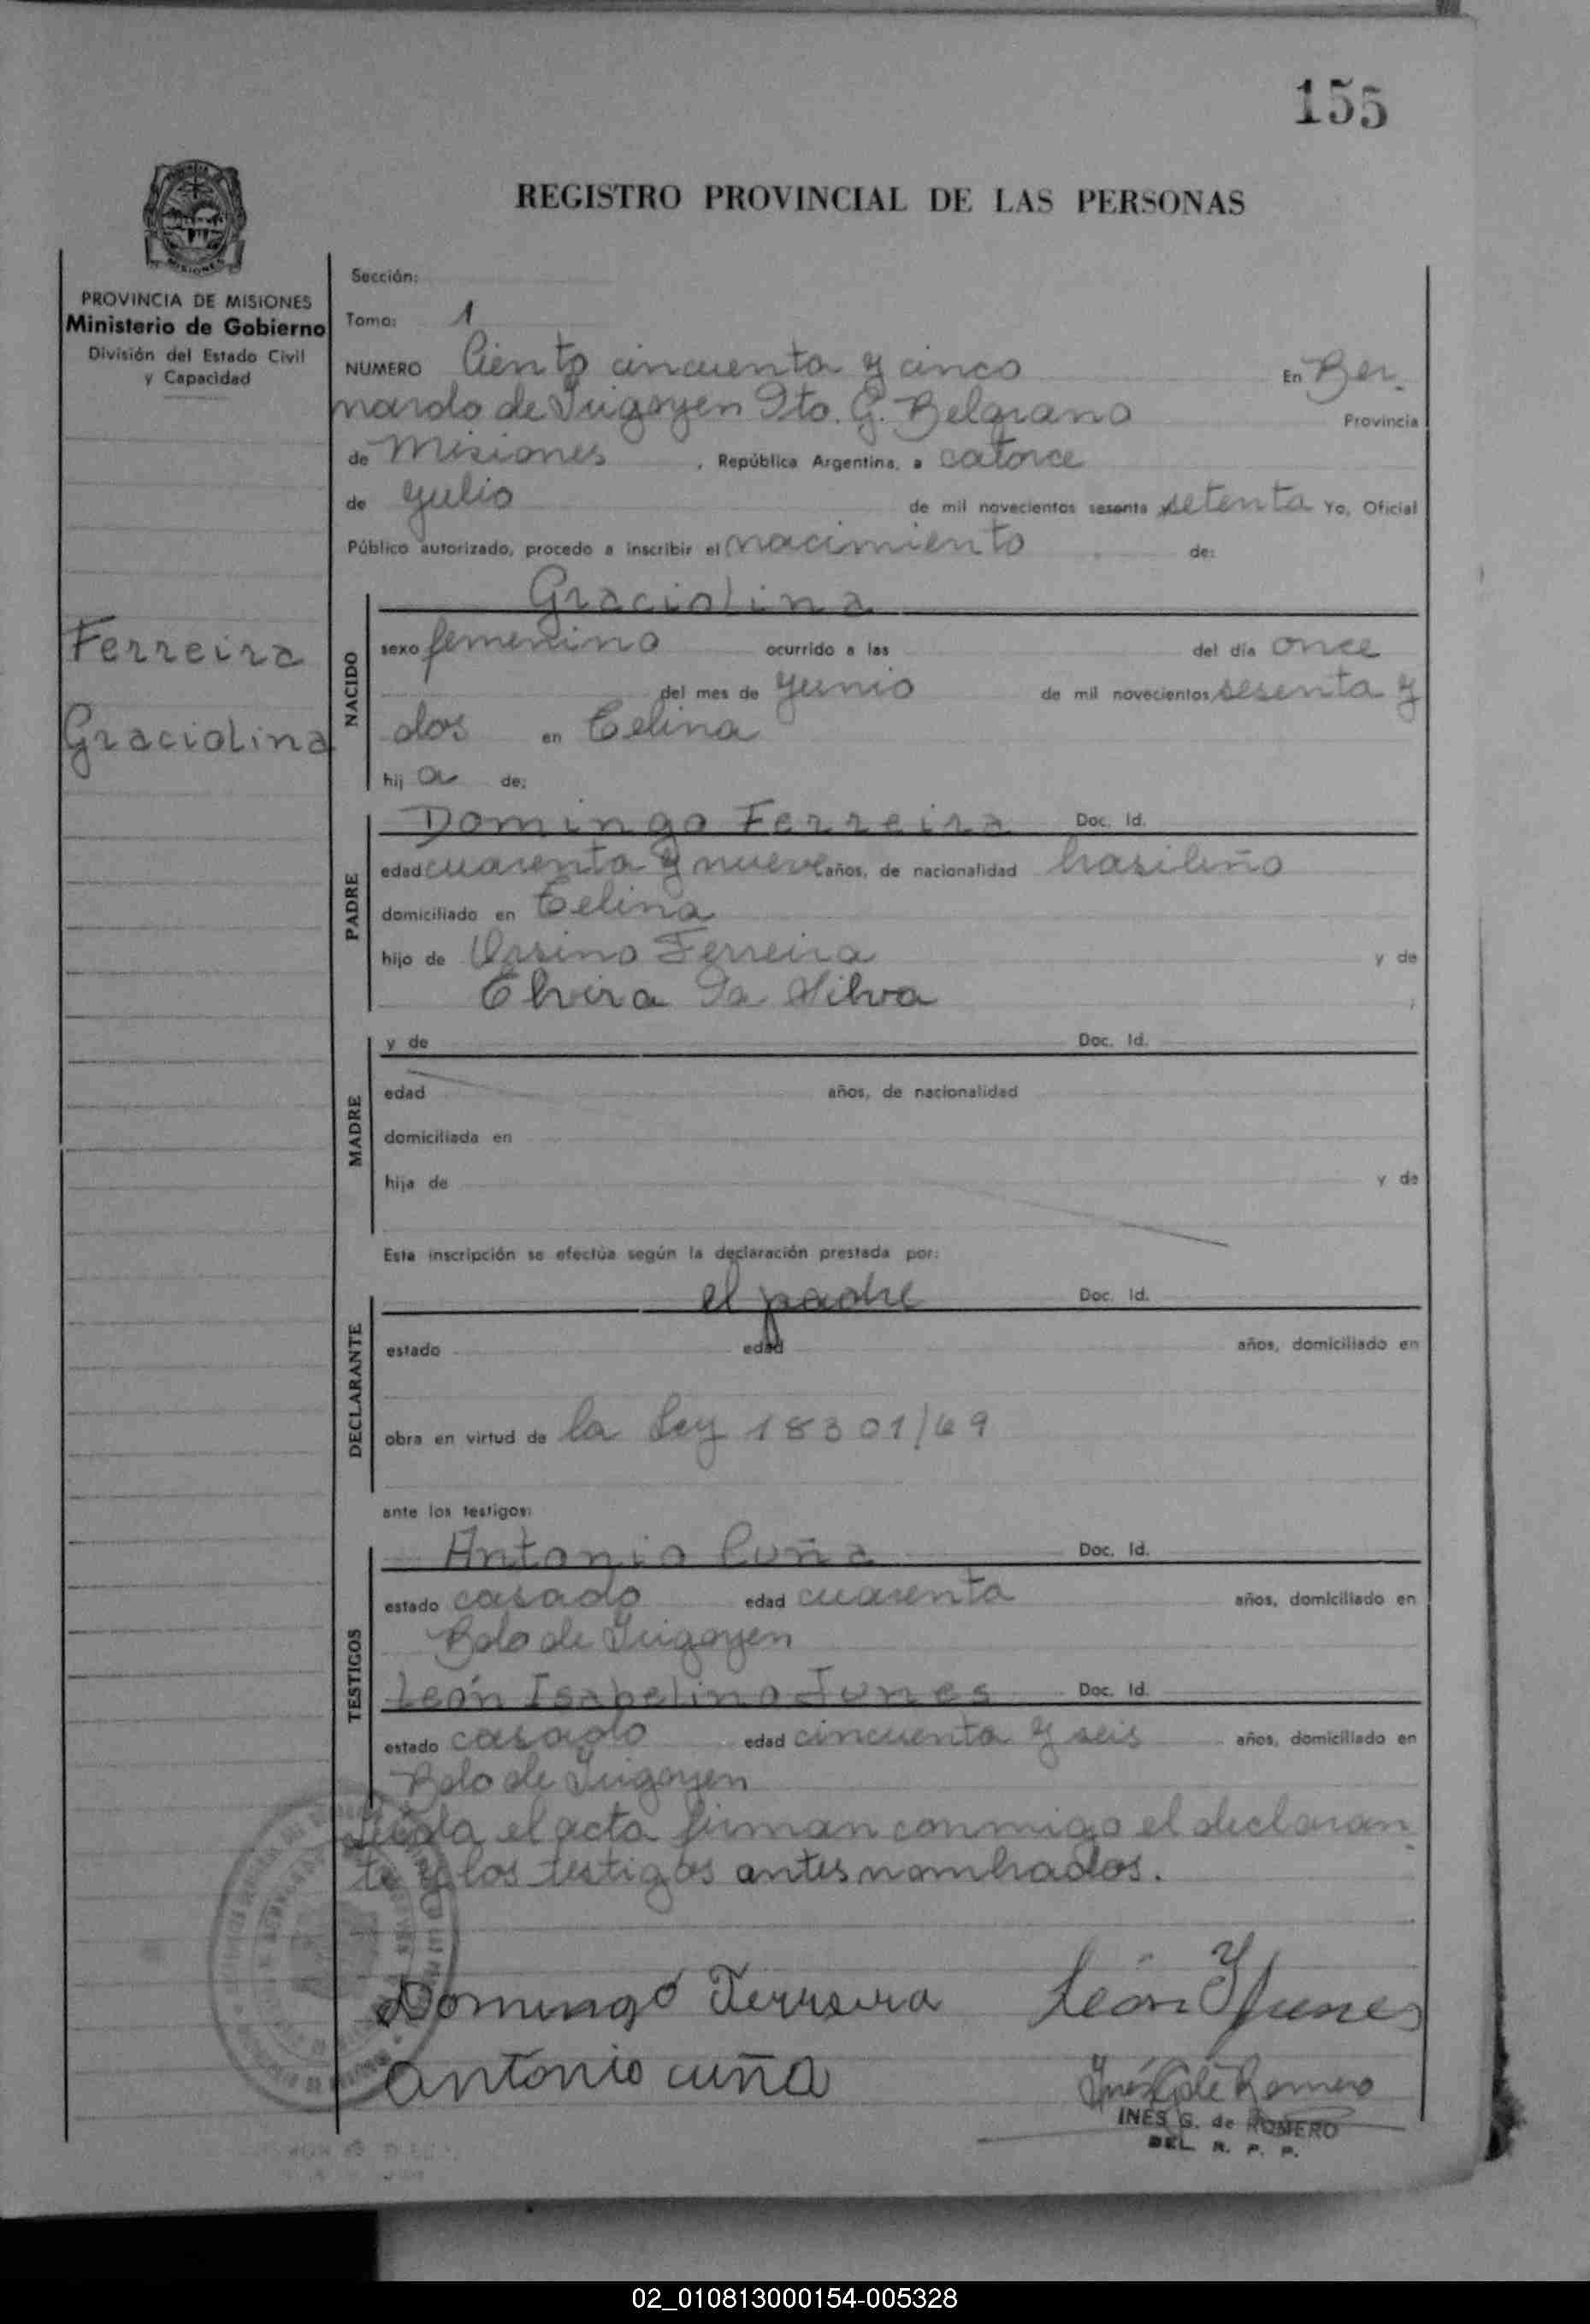 155
REGISTRO PROVINCIAL DE LAS PERSONAS
MISIONES
PROVINCIA DE MISIONES
Ministerio de Gobierno
División del Estado Civil
y Capacidad
Ferreira
Graciolina
Sección:
Tomo: 1
NUMERO Ciento cincuenta y cinco En Ber-
nardo de Irigoyen Dto. G. Belgrano Provincia
de Misiones , República Argentina, a catorce
de Julio de mil novecientos sesenta setenta Yo, Oficial
Público autorizado, procedo a inscribir el nacimiento de:
NACIDO
Graciolina
sexo femenino ocurrido a las del día once
del mes de Junio de mil novecientos sesenta y
dos en Celina
hij a de:
PADRE
Domingo Ferreira Doc. Id.
edad cuarenta y nueve años, de nacionalidad brasileño
domiciliado en Celina
hijo de Ursino Ferreira y de
Elvira Da Silva ;
MADRE
y de Doc. Id.
edad años, de nacionalidad
domiciliada en
hija de y de
Esta inscripción se efectúa según la declaración prestada por:
DECLARANTE
el padre Doc. Id.
estado edad años, domiciliado en
obra en virtud de la Ley 18301/69
ante los testigos:
TESTIGOS
Antonio Cuña Doc. Id.
estado casado edad cuarenta años, domiciliado en
Bdo de Irigoyen
León Isabelino Junes Doc. Id.
estado casado edad cincuenta y seis años, domiciliado en
Bdo de Irigoyen
Leída el acta firman conmigo el declaran-
te y los testigos antes nombrados.
Domingo Ferreira León I Junes
Antonio cuña Inés G de Romero
INES G. de ROMERO
DEL. R. P. P.
02_010813000154-005328